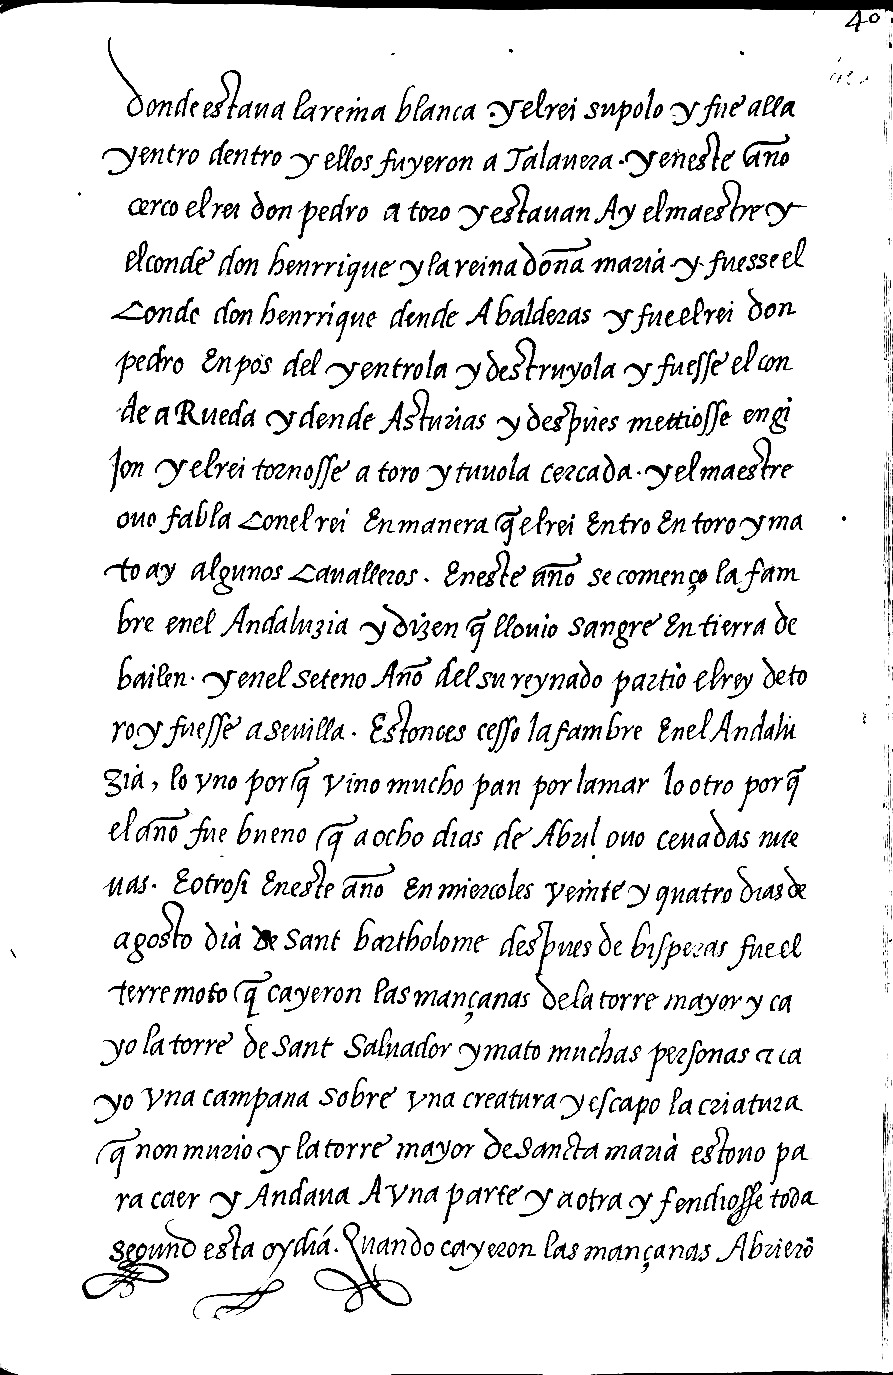 40
donde estaua la reina blanca y el rei supolo y fue alla
y entro dentro y ellos fuyeron a Talauera. y eneste año
cerco el rei don pedro a toro y estauan Ay el maestre y
el conde don henrrique y la reina doña maria y fuesse el
Conde don henrrique dende A balderas y fue el rei don
pedro En pos del y entrola y destruyola y fuesse el con
de a Rueda y dende Asturias y despues mettiosse en gi
jon y el rei tornosse a toro y tuuola cercada. y el maestre
ouo fabla Con el rei En manera q̃ el rei Entro En toro y ma
to ay algunos Caualleros. Eneste año se començo la fam
bre enel Andaluzia y dizen q̃ llouio sangre En tierra de
bailen. y enel seteno Año del su reynado partio el rey de to
ro y fuesse a seuilla. Estonces cesso la fambre Enel Andalu
zia, lo vno porq̃ vino mucho pan por la mar lo otro porq̃
el año fue bueno q̃ a ocho dias de Abril ouo ceuadas nue
uas. E otrosi Eneste año En miercoles veinte y quatro dias de
agosto dia de Sant bartholome despues de bisperas fue el
terremoto q̃ cayeron las mançanas de la torre mayor y ca
yo la torre de Sant Saluador y mato muchas personas a ca
yo vna campana sobre vna creatura y escapo la criatura
q̃ non murio y la torre mayor de Sancta maria estouo pa
ra caer y Andaua A vna parte y a otra y fendiosse toda
segund esta oy dia. Quando cayeron las mançanas Abrierõ